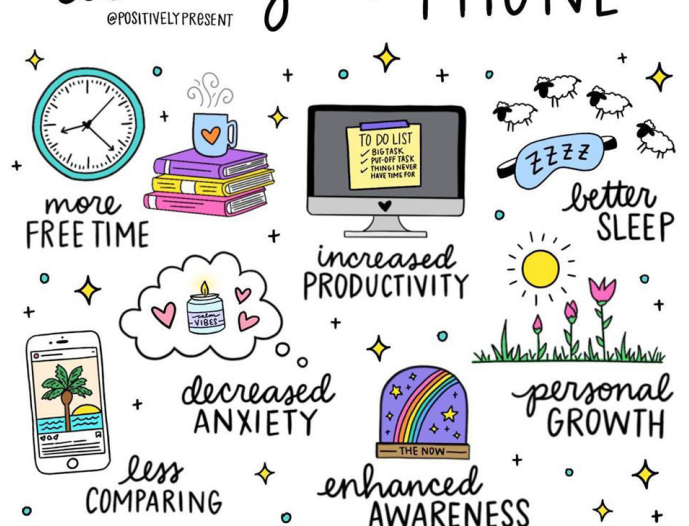 PHONE
@POSITIVELYPRESENT
more
FREE TIME
TO DO LIST
✓ BIG TASK
✓ PUT-OFF TASK
✓ THING I NEVER
HAVE TIME FOR
increased
PRODUCTIVITY
ZZZZ
better
SLEEP
calm
VIBES
decreased
ANXIETY
personal
GROWTH
less
COMPARING
THE NOW
enhanced
AWARENESS